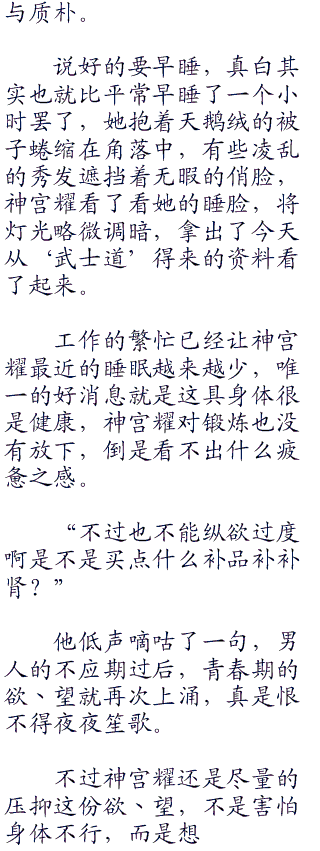 与质朴。
说好的要早睡，真白其
实也就比平常早睡了一个小
时罢了，她抱着天鹅绒的被
子蜷缩在角落中，有些凌乱
的秀发遮挡着无暇的俏脸，
神宫耀看了看她的睡脸，将
灯光略微调暗，拿出了今天
从‘武士道’得来的资料看
了起来。
工作的繁忙已经让神宫
耀最近的睡眠越来越少，唯
一的好消息就是这具身体很
是健康，神宫耀对锻炼也没
有放下，倒是看不出什么疲
惫之感。
“不过也不能纵欲过度
啊是不是买点什么补品补补
肾？”
他低声嘀咕了一句，男
人的不应期过后，青春期的
欲丶望就再次上涌，真是恨
不得夜夜笙歌。
不过神宫耀还是尽量的
压抑这份欲丶望，不是害怕
身体不行，而是想